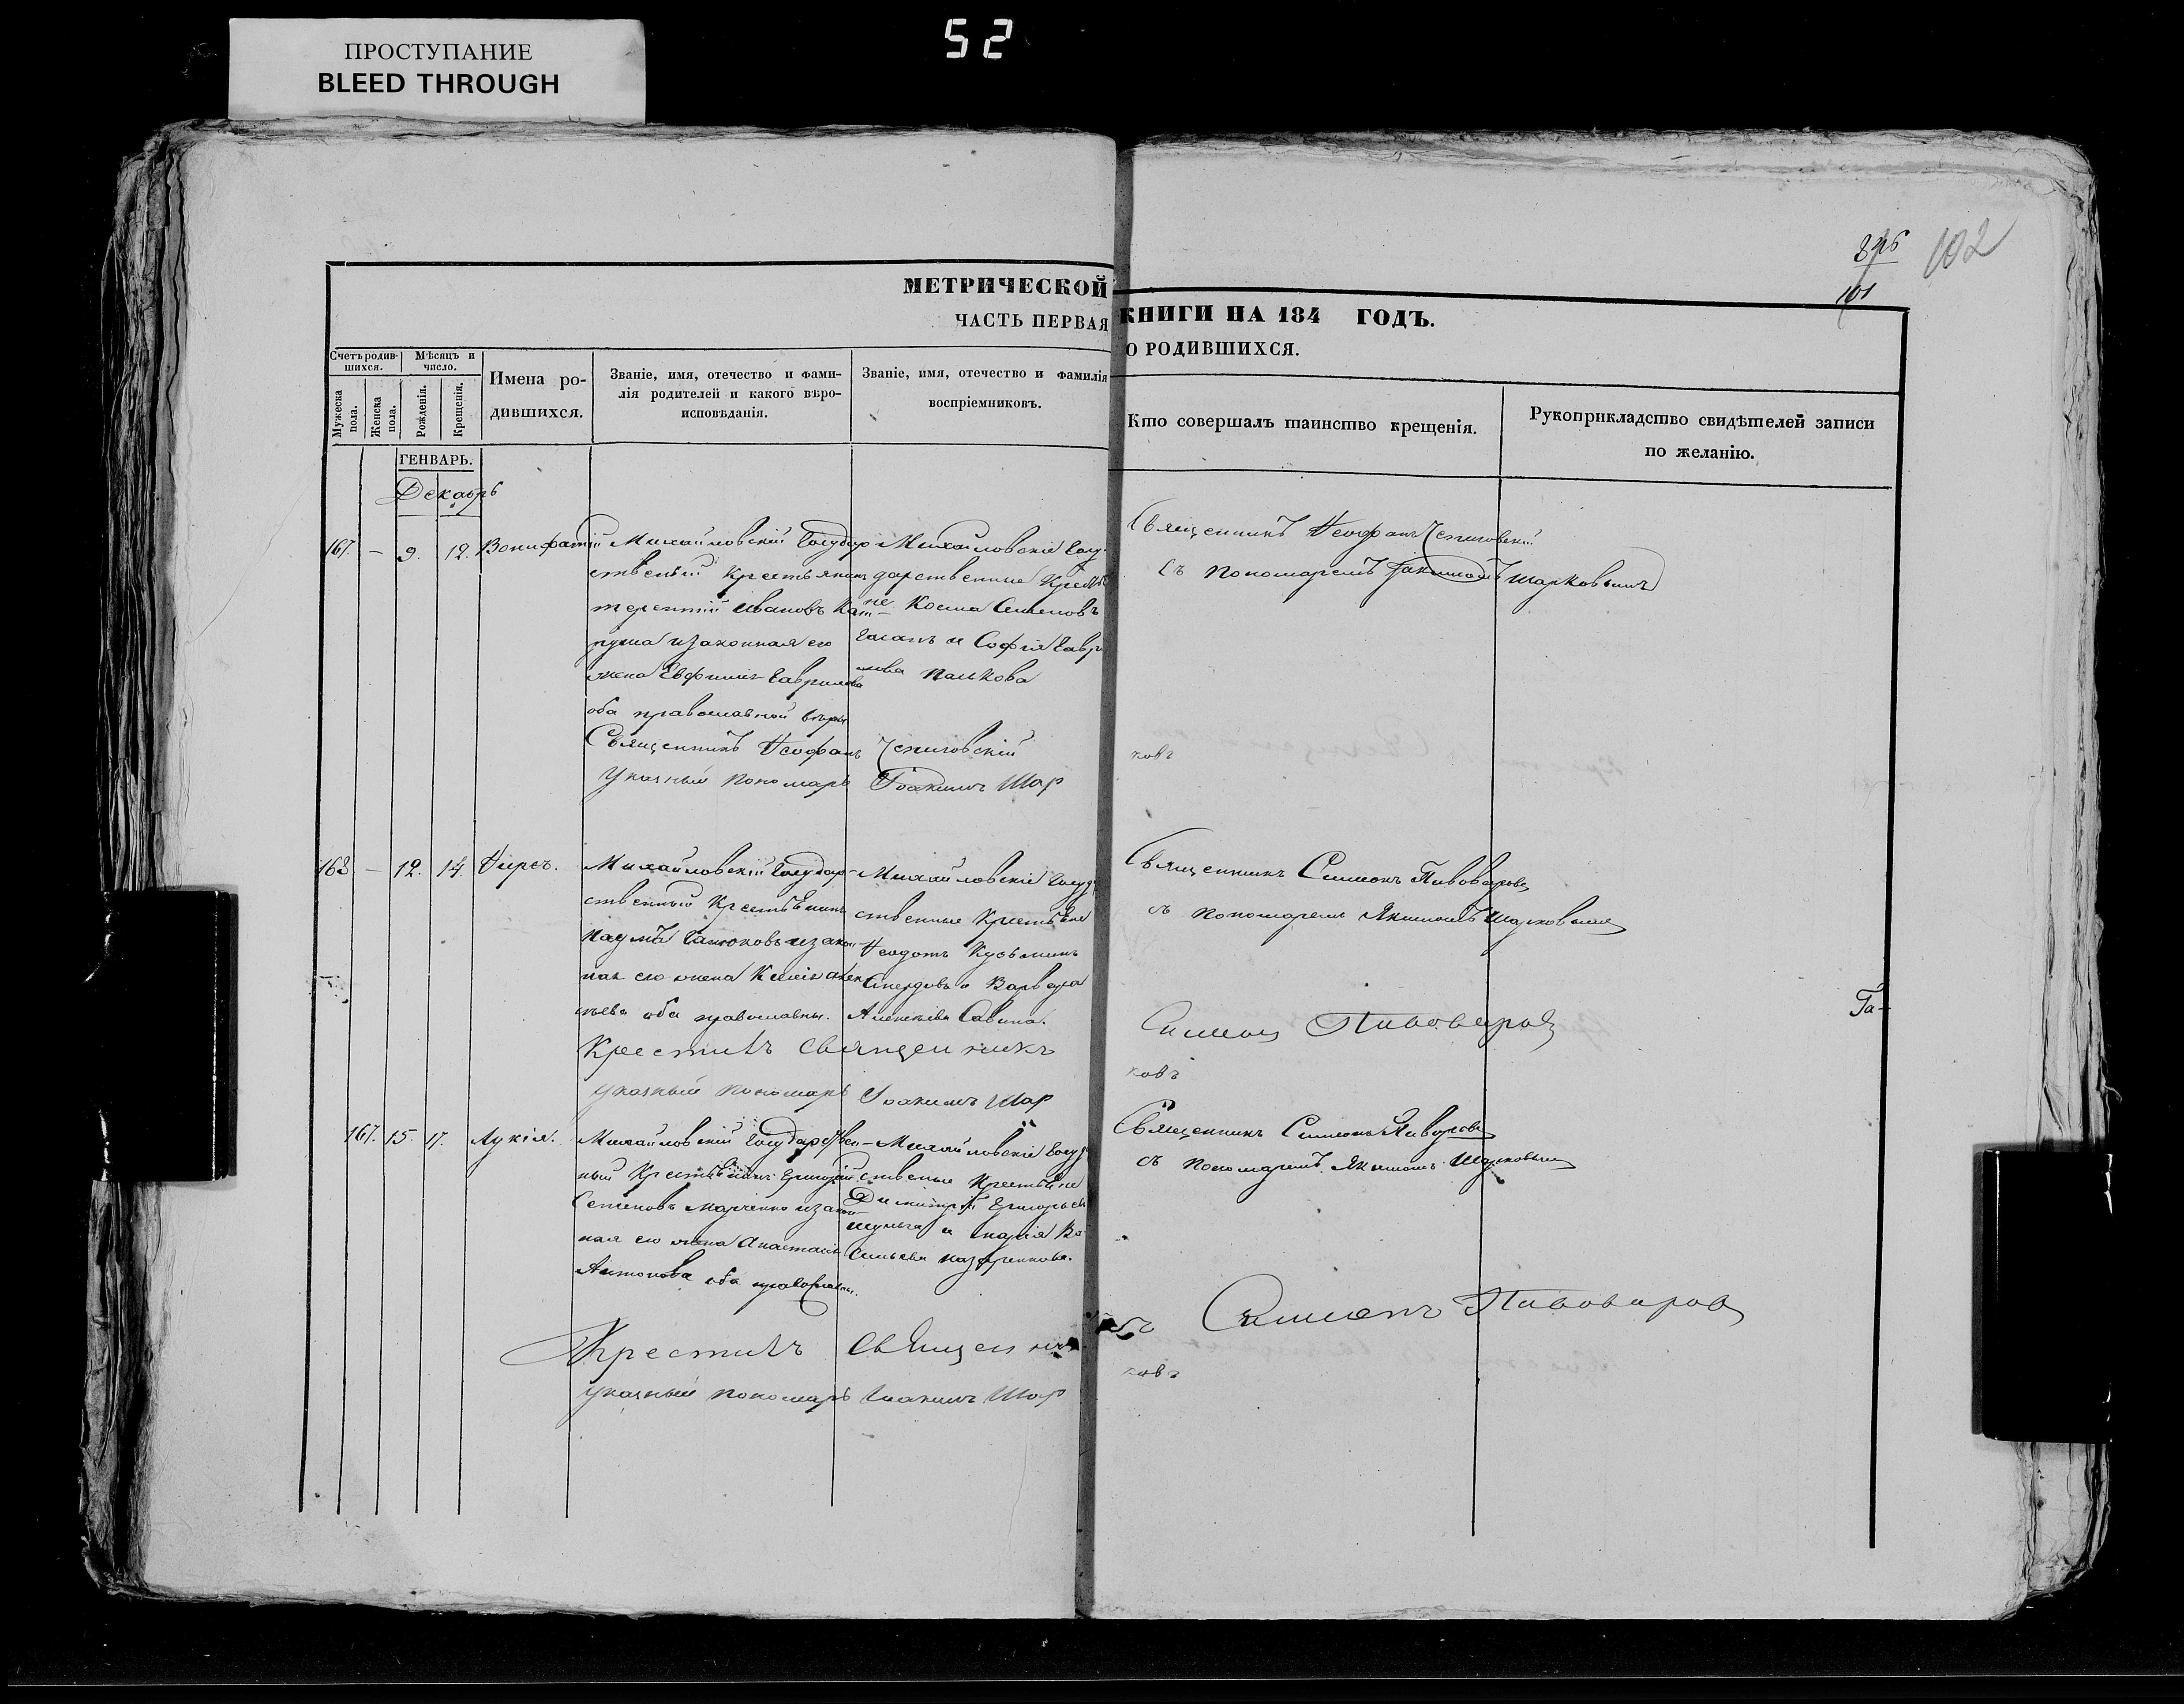 ПРОСТУПАНИЕ
BLEED THROUGH
52
102
101
МЕТРИЧЕСКОЙ КНИГИ НА 184 ГОДЪ.
ЧАСТЬ ПЕРВАЯ О РОДИВШИХСЯ.
Счетъ родив-
шихся.
Мужеска пола.
Женска пола.
Мѣсяцъ и
число.
Рожденія.
Крещенія.
Имена ро-
дившихся.
Званіе, имя, отечество и фами-
лія родителей и какого вѣро-
исповѣданія.
Званіе, имя, отечество и фамилія
воспріемниковъ.
Кто совершалъ таинство крещенія.
Рукоприкладство свидѣтелей записи
по желанію.
ГЕНВАРЬ.
Декабрь
167. — 9. 12. Вонифатій
Михайловскій Государ
ственый крестьянинъ
терентій Ивановъ
изаконная его
жена Евфимія Гаврилова
оба православной вѣры
Михайловскіе Госу-
дарственные Кресть
не Косма Семеновъ
и Софія Гавр
илова
Священникъ Ѳеофанъ
съ пономаремъ Шарковымъ
Священникъ Ѳеофанъ
Указный пономарь Іоакимъ Шар
ковъ
168 — 12. 14. Ѳирсъ.
Михайловскій Государ-
ственный Крестьѣнинъ
Наумъ изакон
ная его жена
оба православны.
Михайловскіе Госуд
ственные Крестьѣне
Ѳеодотъ Кузьминъ
и Варвара
Алексѣева Савина.
Священникъ Симеонъ Пивоваровъ
съ пономаремъ Якимомъ Шарковымъ
Крестилъ Священникъ
Симеонъ Пивоваровъ
Указный пономарь Іоакимъ Шар
ковъ
167. 15. 17. Лукія.
Михайловскій Государствен-
ный Крестьѣнинъ Григорій
Семеновъ Марченко изакон
ная его жена Анастасія
Антонова оба православны.
Михайловскіе Госуд
ственые Крестьѣне
Димитрій Григорьевъ
и Марія Ва
сильева Назаренкова.
Священникъ Симеонъ Пивоваровъ
съ пономаремъ Якимомъ Шарковымъ
Крестилъ Священникъ
Симеонъ Пивоваровъ
Указный пономарь Іоакимъ Шар
ковъ